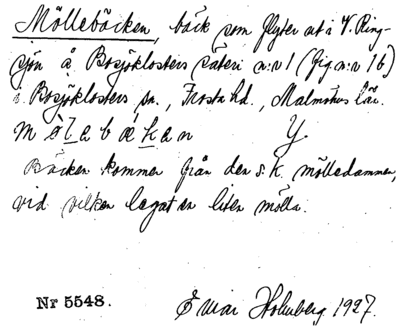 Möllebäcken, bäck som flyter ut i V. Ring-
sjön å Bosjöklosters säteri n:r 1 (fig n:r 16)
i Bosjöklosters sn., Frosta hd., Malmöhus län.
Y.
Bäcken kommer från den s.k. mölledammen,
vid vilken legat en liten mölla.
Nr 5548. Einar Holmberg 1927.